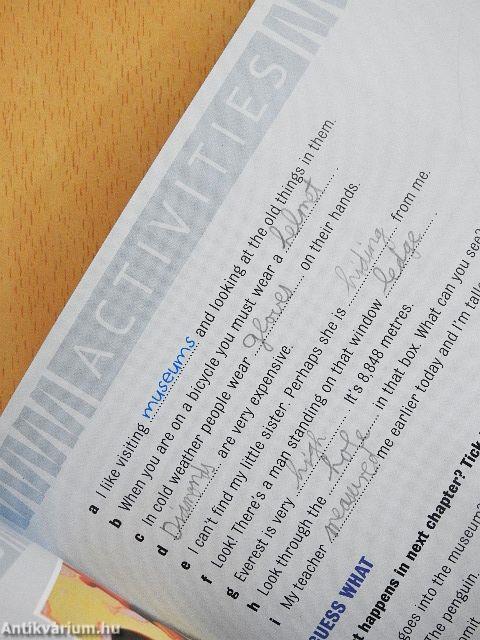 ACTIVITIES
a I like visiting museums and looking at the old things in them.
b When you are on a bicycle you must wear a helmet
c In cold weather people wear gloves on their hands.
d Dummys are very expensive.
e I can't find my little sister. Perhaps she is hiding from me.
f Look! There's a man standing on that window ledge
g Everest is very high It's 8,848 metres.
h Look through the hole in that box. What can you see?
i My teacher measured me earlier today and I'm
GUESS WHAT
happens in next chapter? Tick
goes into the museum
penguin.
Antikvárium.hu